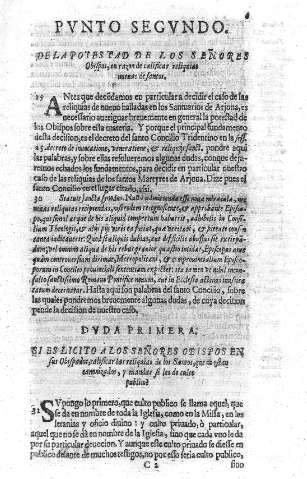 PVNTO SEGVNDO.
DE LA POTESTAD DE LOS SEÑORES
Obispos, en razon de calificar reliquias
de santos.
29 ANtes que decendamos en particular a decidir el caso de las
reliquias de nueuo halladas en los Santuarios de Arjona, es
necessario aueriguar breuemente en general la potestad de
los Obispos sobre esta materia. Y porque el principal fundamento
desta decision, es el decreto del santo Concilio Tridentino en la
25 decreto de inuocatione, veneratione, & reliquijs sanct. pondre aqui
las palabras, y sobre ellas resolueremos algunas dudas, con que dexa-
remos echados los fundamentos, para decidir en particular nuestro
caso de las reliquias de los santos Martyres de Arjona. Dize pues el
santo Concilio en el lugar citado,
30 Statuit sancta synodus. Nulla admittenda esse noua miracula, nec
nouas reliquias recipiendas, nisi eodem recognoscente, & approbante Episco-
po, qui simul atque de his aliquid compertum habuerit, adhibitis in consi-
lium Theologis, & alijs pijs viris ea faciat, quæ veritati, & pietati consen-
tanea iudicauerit. Quod si aliquis dubius, aut difficilis abusus sit extirpan-
dus, vel omnino aliqua de his rebus grauior quæstio incidat, Episcopus ante
quam controuersiam dirimat, Metropolitani, & comprouincialium Episco-
porum in Concilio prouinciali sententiam expectet: ita tamen vt nihil incon-
sulto sanctissimo Romano Pontifice nouum, aut in Ecclesia hactenus inusita-
tum decernatur. Hasta aqui son palabras del santo Concilio, sobre
las quales pondremos breuemente algunas dudas, de cuya decision
pende la decision de nuestro caso.
DVDA PRIMERA.
SI ES LICITO A LOS SEÑORES OBISPOS EN
sus Obispados, calificar las reliquias de los Santos, que no estan
canonizados, y mandar se les de culto
publico?
31 SVpongo lo primero, que culto publico se llama aquel, que
se da en nombre de toda la Iglesia, como en la Missa, en las
letanias y oficio diuino: y culto priuado, ò particular,
aquel que no se dà en nombre de la Iglesia, sino que cada vno le da
por su particular deuocion. Y aunque este culto priuado se diesse en
publico delante de muchos testigos, no por esso seria culto publico,
C 2 sino